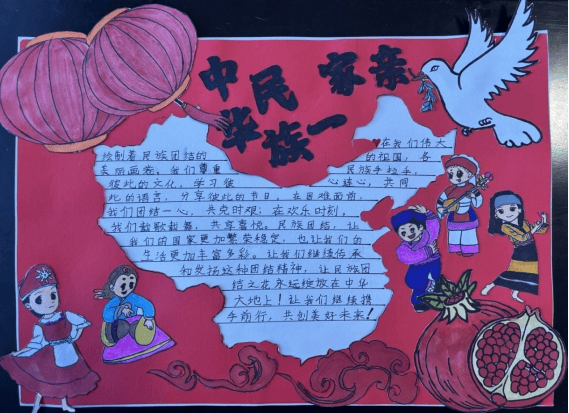 中华民族一家亲
在我们伟大
的祖国，各
民族手拉手，
心连心，共同
绘制着民族团结的
美丽画卷。我们尊重
彼此的文化，学习彼
此的语言，分享彼此的节日。在困难面前，
我们团结一心，共克时艰；在欢乐时刻，
我们载歌载舞，共享喜悦。民族团结，让
我们的国家更加繁荣稳定，也让我们的
生活更加丰富多彩。让我们继续传承
和发扬这种团结精神，让民族团
结之花永远绽放在中华
大地上！让我们继续携
手前行，共创美好未来！